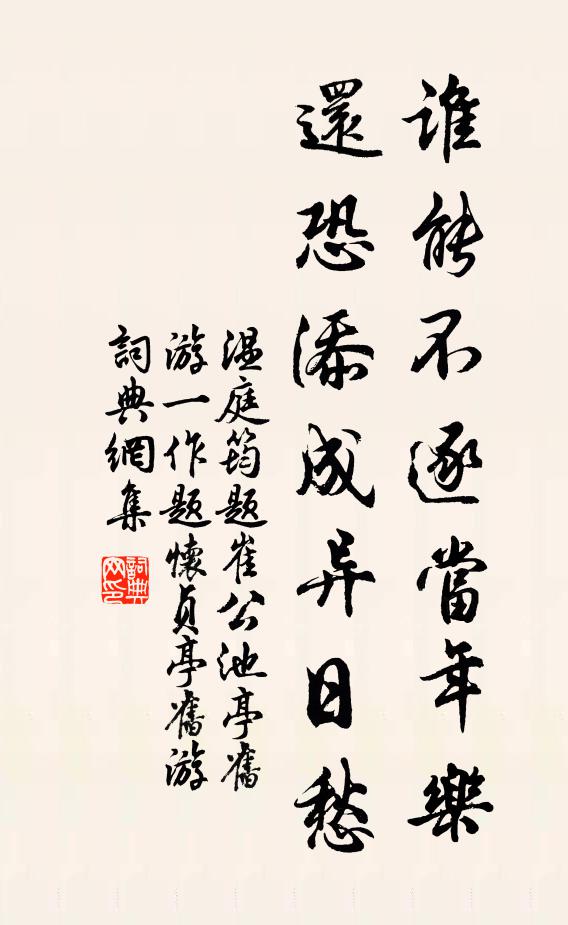 誰能不逐當年樂
還恐添成异日愁
温庭筠題崔公池亭舊
游一作題懷貞亭舊游
詞典網集
詞典
网印